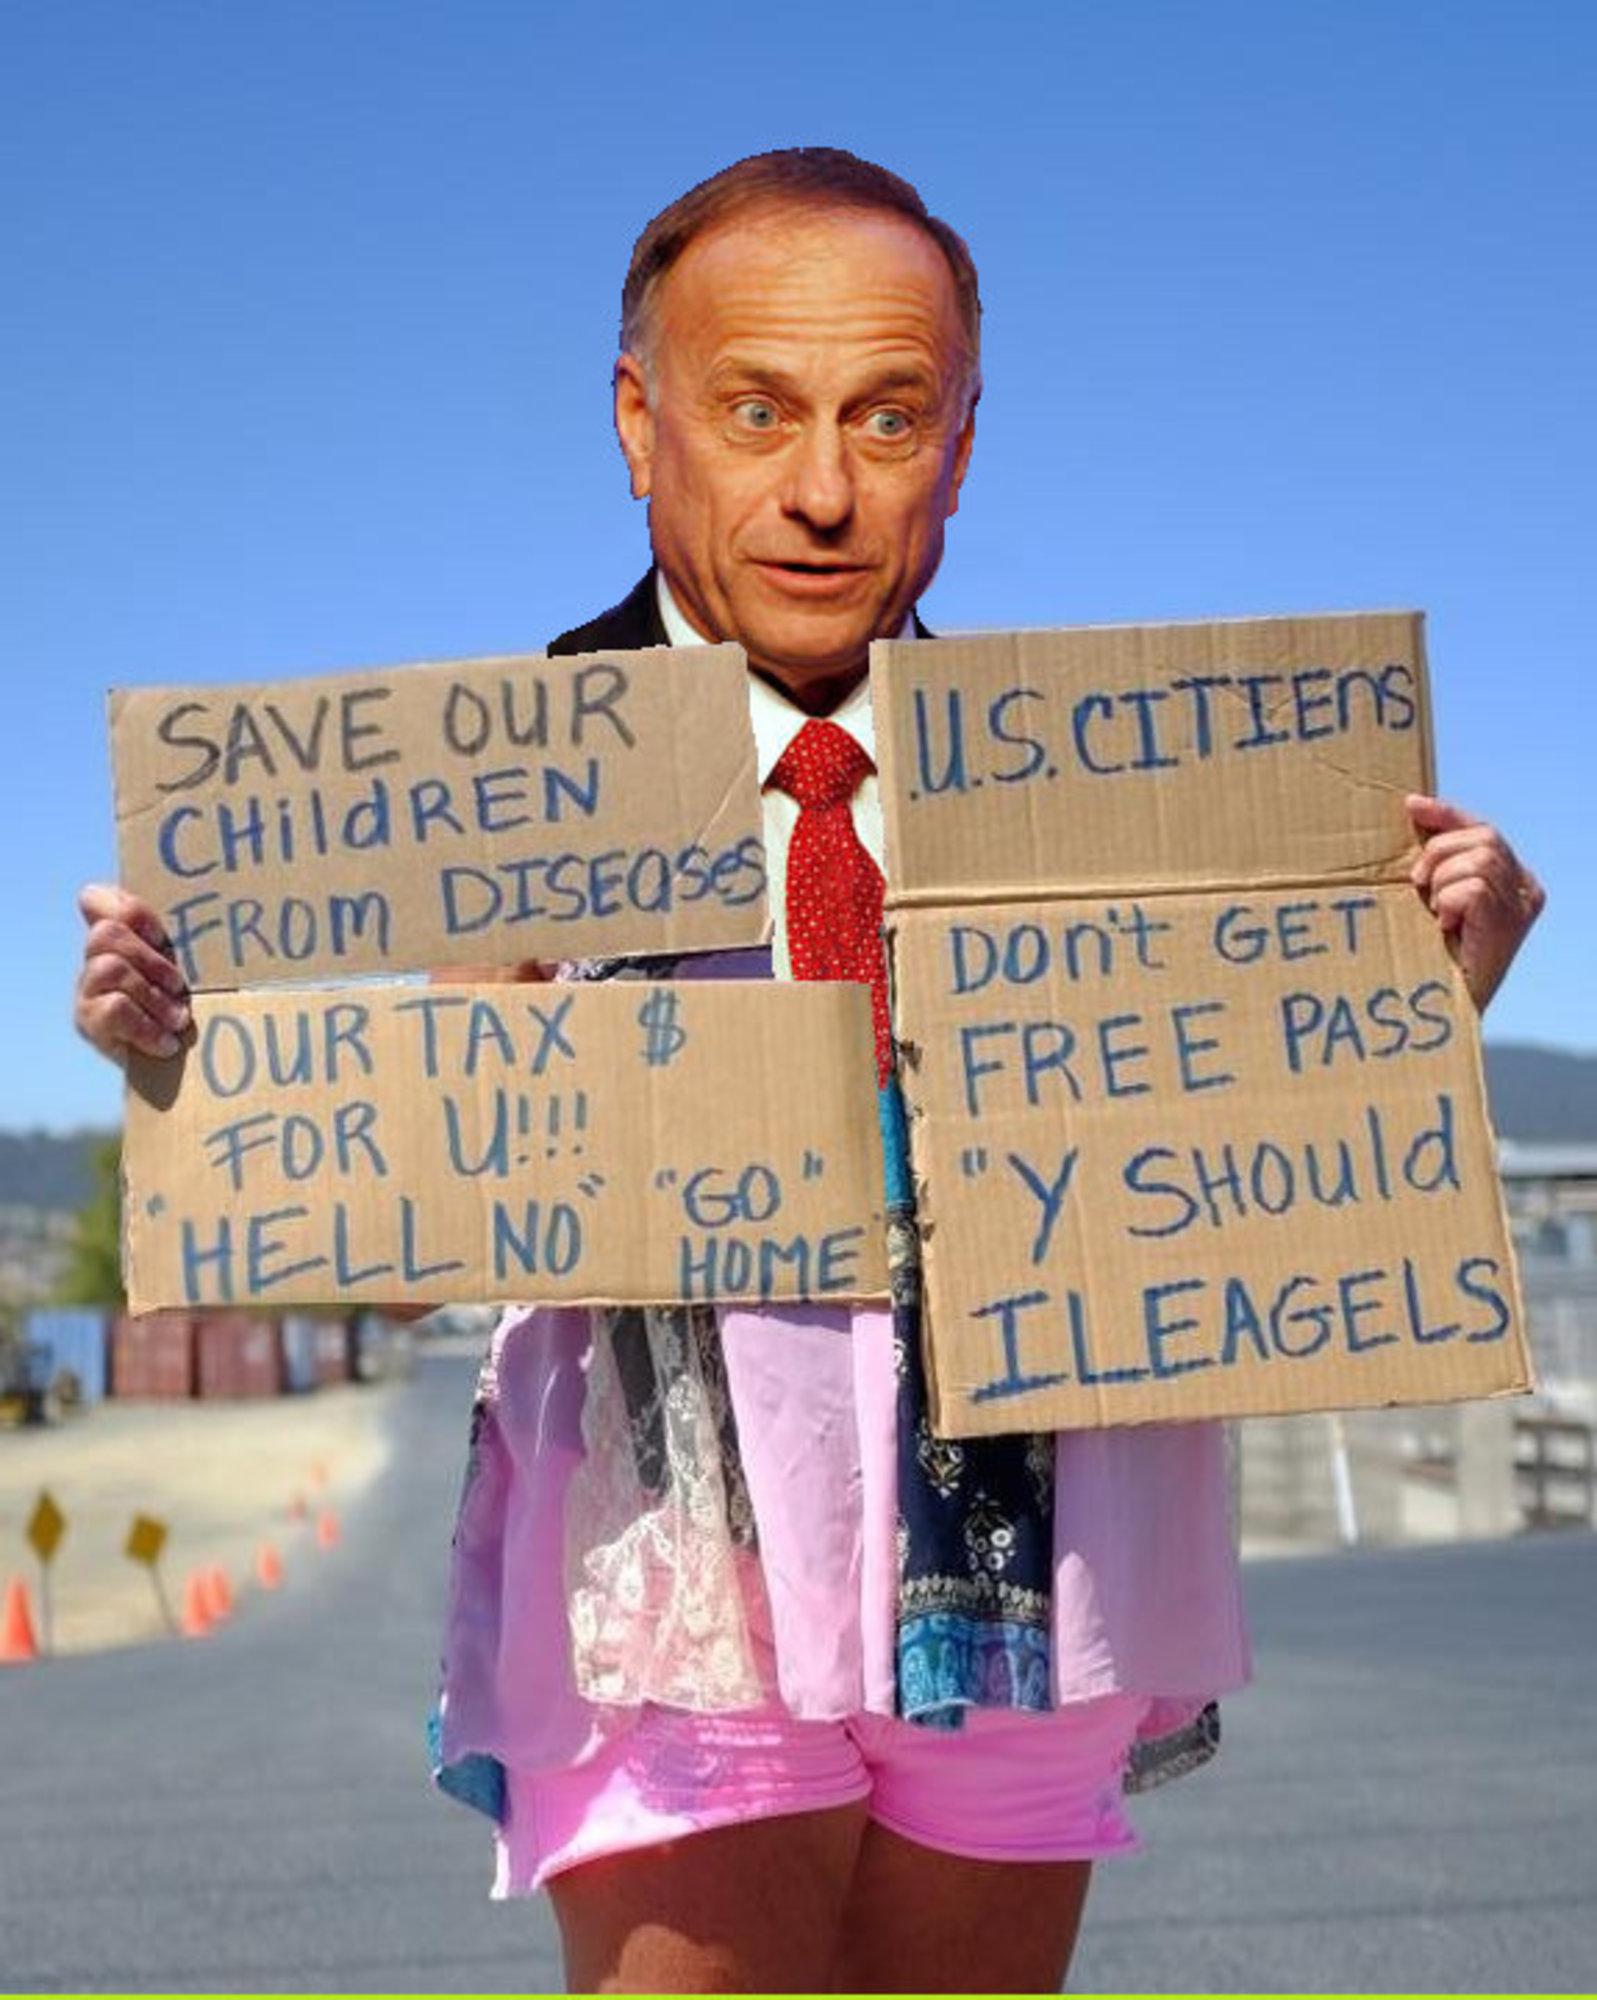 SAVE OUR
CHildREN
FROM DISEASES
OUR TAX $
FOR U!!!
"HELL NO" "GO"
HOME
.U.S. CITIENS
DON't GET
FREE PASS
"Y SHOuld
ILEAGELS